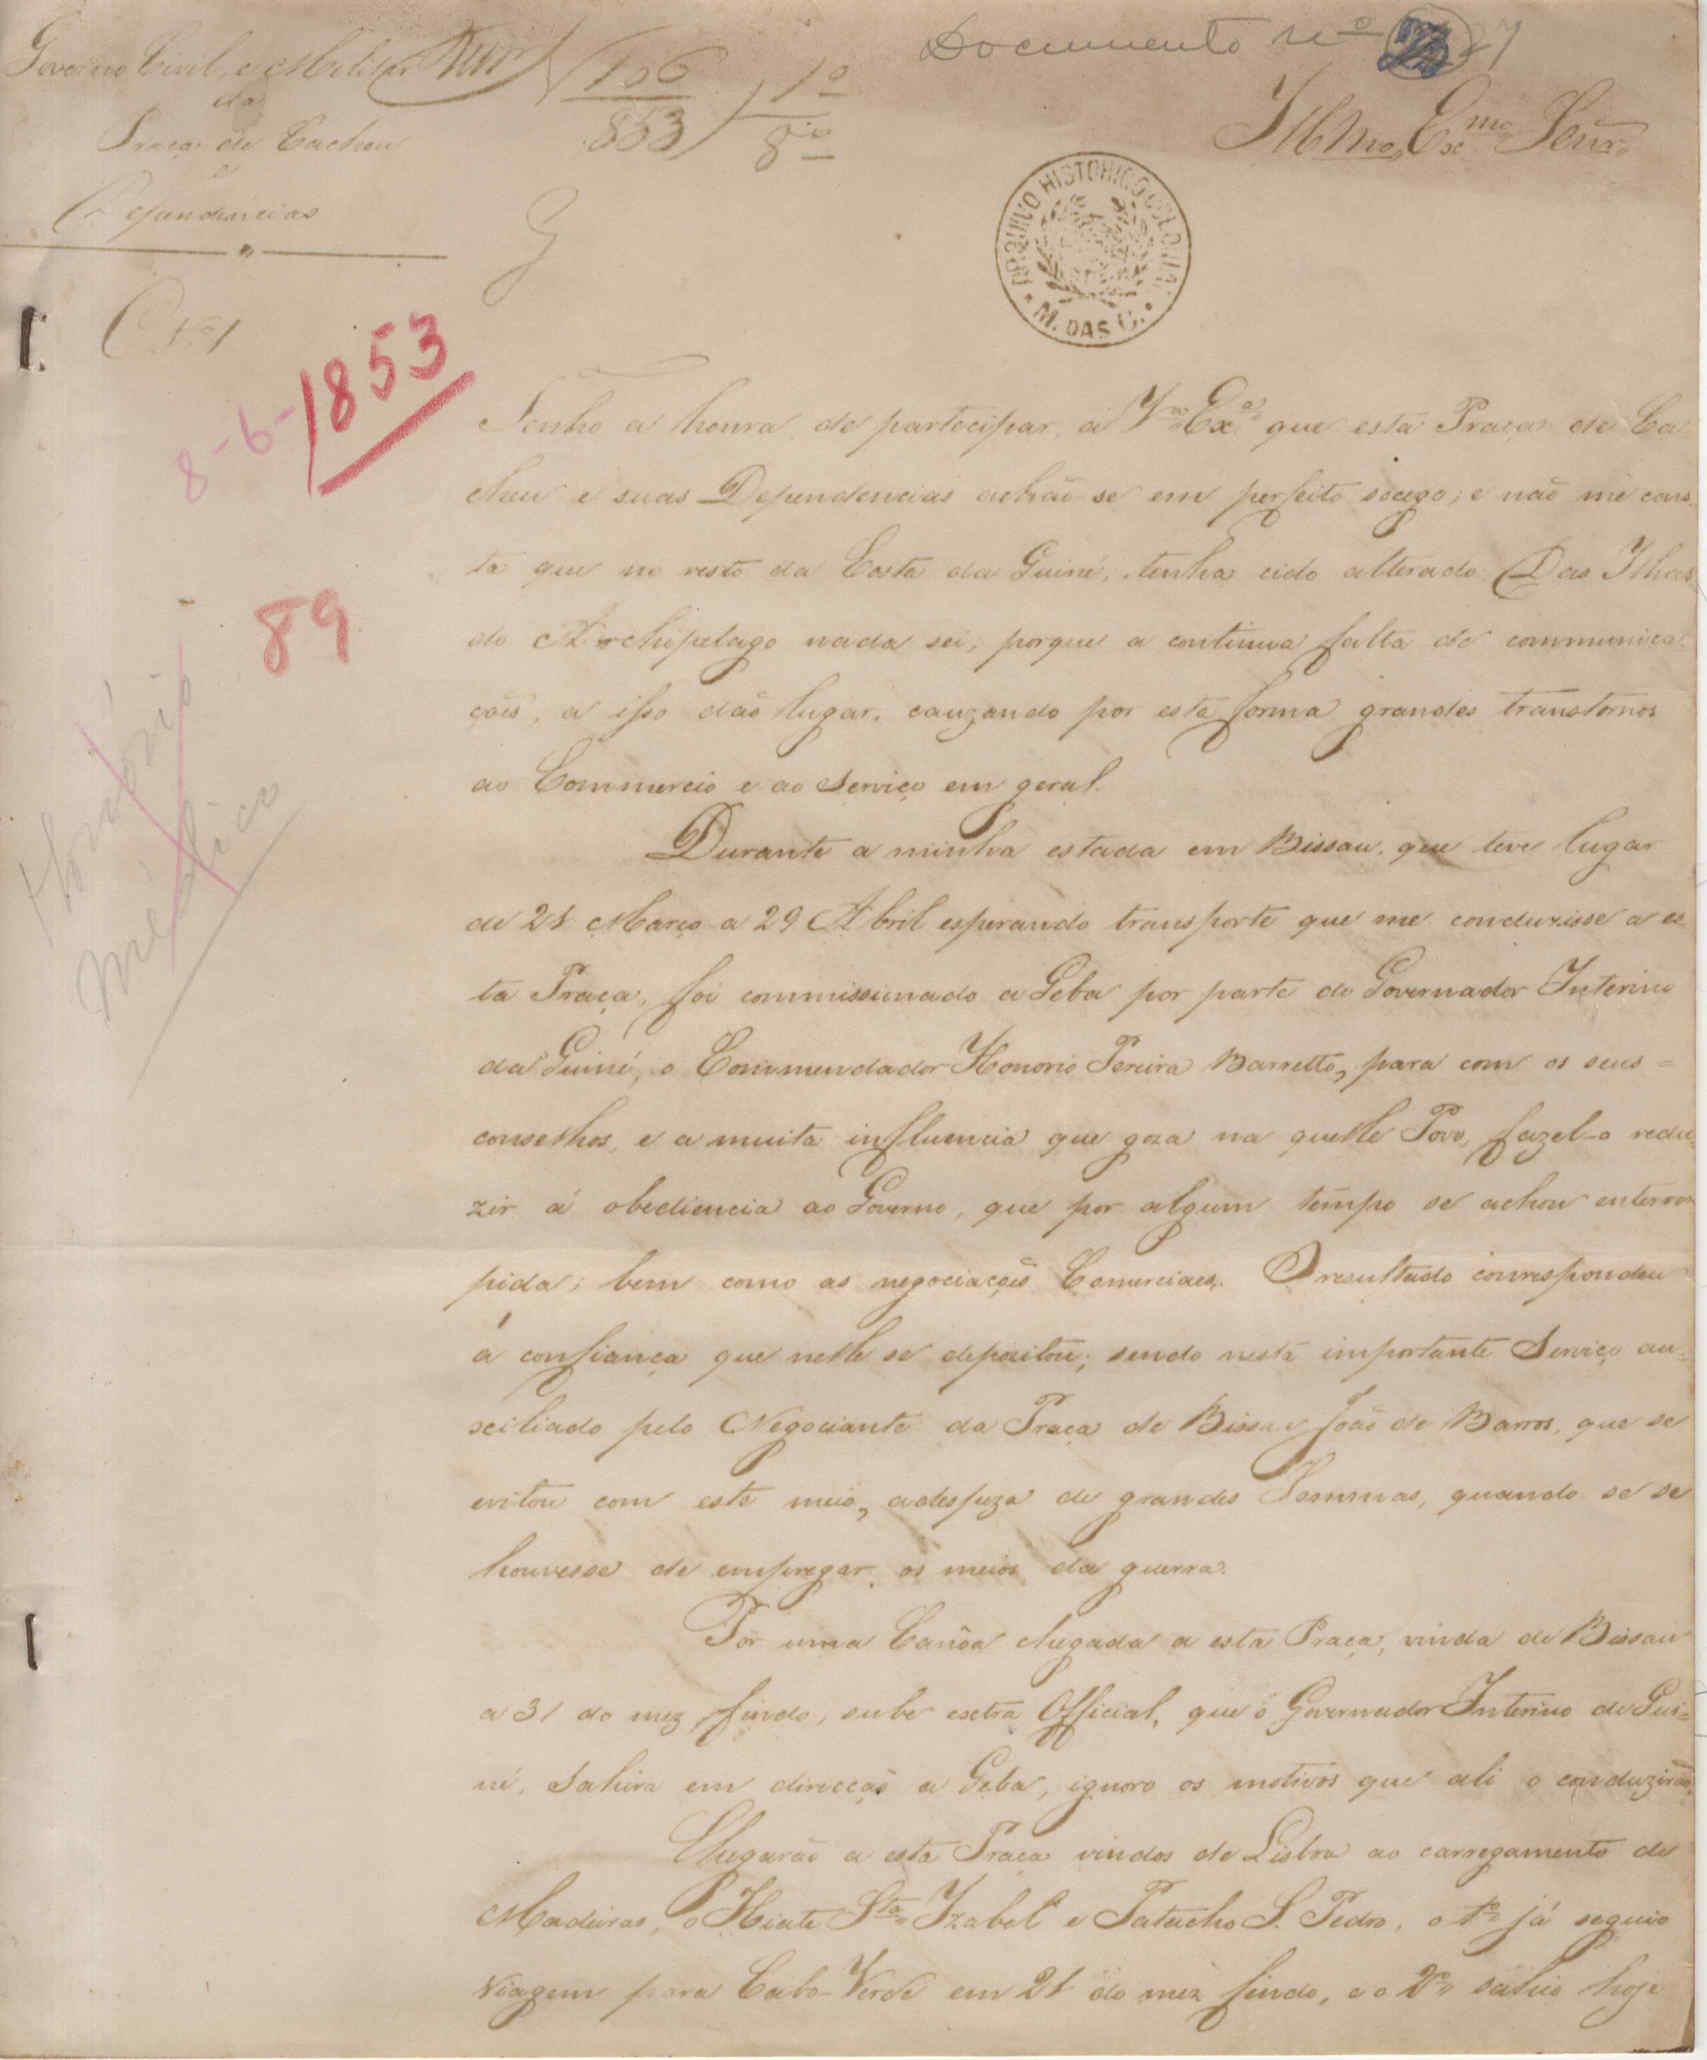 Documento nº 27
Governo Civil, e Militar
da
Praça de Cacheu
e
Dependencias
106
853
1º
8
Illmo Exmo Senr.
ARQUIVO HISTORICO COLONIAL
M. DAS C.
8-6-1853
89
Honório
médico
Tenho a honra de partecipar, a V.ª Ex.ª que esta Praça de Ca
cheu e suas Dependencias achão-se em perfeito socego; e não me cons
ta que no resto da Costa da Guiné, tenha cido alterado. Das Ilhas
do Archipelago nada sei, porque a continua falta de communica
çoẽs, a isso dão lugar, cauzando por esta forma grandes transtornos
ao Commercio e ao Serviço em geral.
Durante a minha estada em Bissau, que teve lugar
de 21 Março a 29 Abril esperando transporte que me conduzisse a es
ta Praça, foi commissionado a Geba por parte do Governador Interino
da Guiné, o Commendador Honorio Pereira Barretto, para com os seus=
conselhos, e a muita influencia que goza na quelle Povo, fazel-o redu
zir á obediencia ao Governo, que por algum tempo se achou enterrom
pida; bem como as negociaçoẽs Comerciaes. O resultado correspondeu
á confiança que nelle se depozitou; sendo nesta importante Serviço au=
sciliado pelo Negociante da Praça de Bissau João de Barros, que se
evitou com este meio, adespeza de grandes Sommas, quando se se
houvesse de empregar os meios da guerra.
Por uma Canôa chegada a esta Praça, vinda de Bissau
a 31 do mez findo, sube extra Official, que o Governador Interino de Gui=
né, Sahira em direcção a Geba, ignoro os motivos que ali o conduzirão.
Chegarão a esta Praça vindos de Lisboa ao carregamento de
Madeiras, o Hiate Sta Izabel e Patacho S. Pedro, o 1º já seguio
viagem para Cabo-Verde em 21 do mez findo, e o 2º sahio hoje